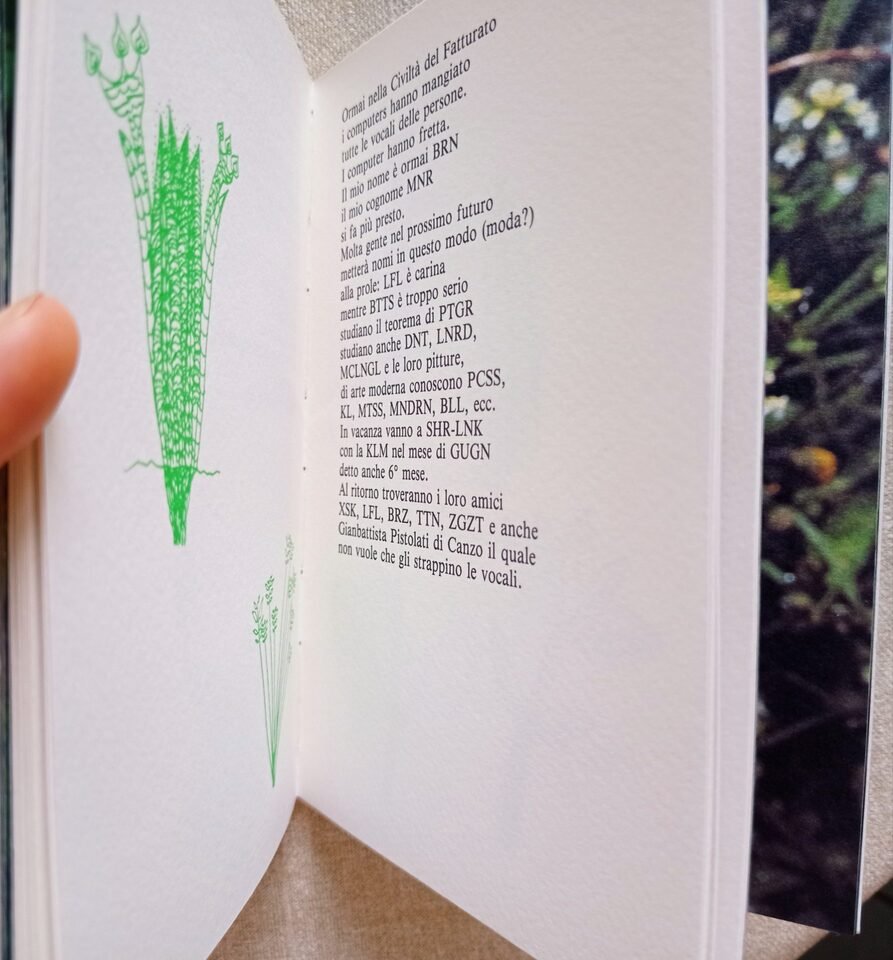 Ormai nella Civiltà del Fatturato
i computers hanno mangiato
tutte le vocali delle persone.
I computer hanno fretta.
Il mio nome è ormai BRN
il mio cognome MNR
si fa più presto.
Molta gente nel prossimo futuro
metterà nomi in questo modo (moda?)
alla prole: LFL è carina
mentre BTTS è troppo serio
studiano il teorema di PTGR
studiano anche DNT, LNRD,
MCLNGL e le loro pitture,
di arte moderna conoscono PCSS,
KL, MTSS, MNDRN, BLL, ecc.
In vacanza vanno a SHR-LNK
con la KLM nel mese di GUGN
detto anche 6° mese.
Al ritorno troveranno i loro amici
XSK, LFL, BRZ, TTN, ZGZT e anche
Gianbattista Pistolati di Canzo il quale
non vuole che gli strappino le vocali.